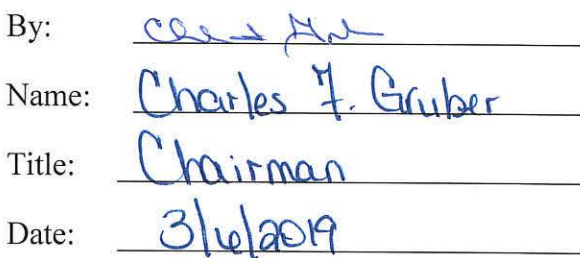 By:
Name: Charles F. Gruber
Title: Chairman
Date: 3/6/2019